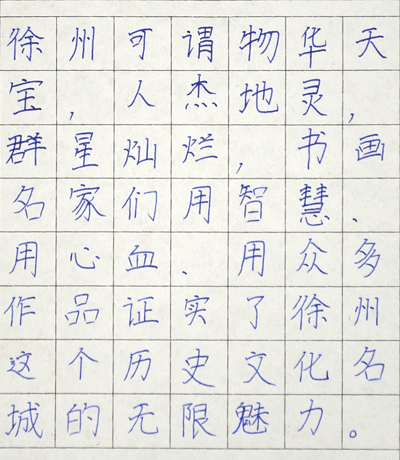 徐州可谓物华天
宝,人杰地灵,
群星灿烂,书画
名家们用智慧、
用心血、用众多
作品证实了徐州
这个历史文化名
城的无限魅力。